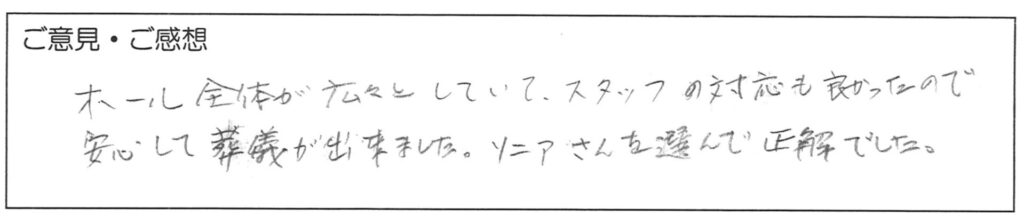 ご意見・ご感想
ホール全体が広々としていて、スタッフの対応も良かったので
安心して葬儀が出来ました。ソニアさんを選んで正解でした。